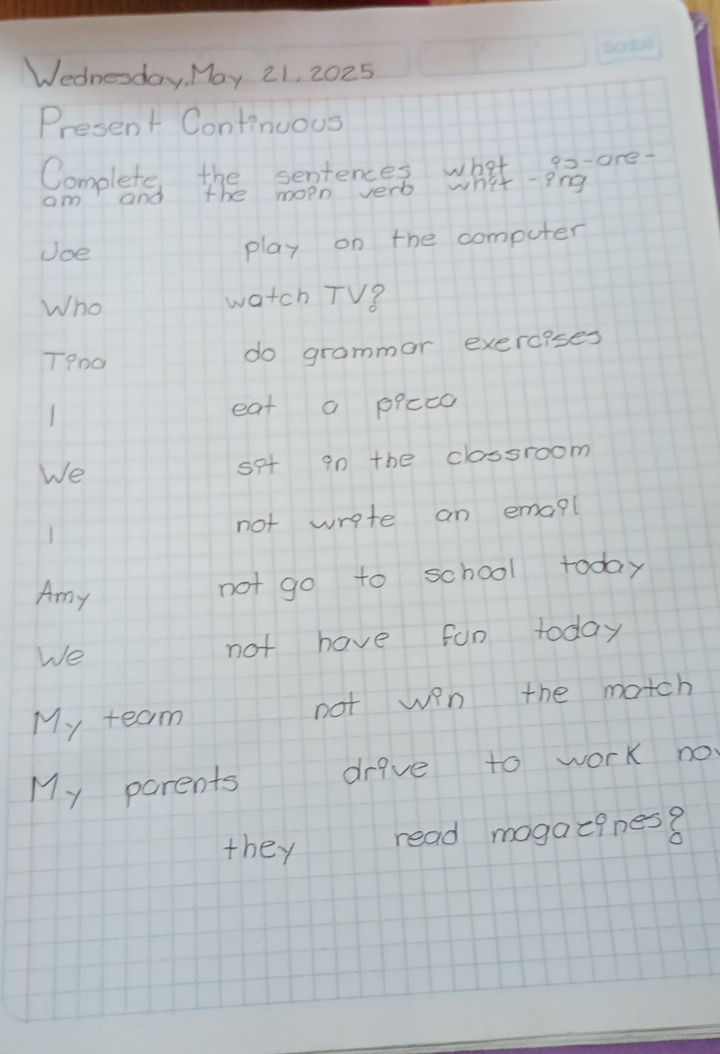 Scribe
Wednesday, May 21, 2025
Present Continuous
Complete the sentences what is-are-
am and the main verb what -ing
Joe play on the computer
Who watch TV?
Tina do grammar exercises
I eat a pizza
We sit in the classroom
I not write an email
Amy not go to school today
We not have fun today
My team not win the match
My parents drive to work no
they read magazines?